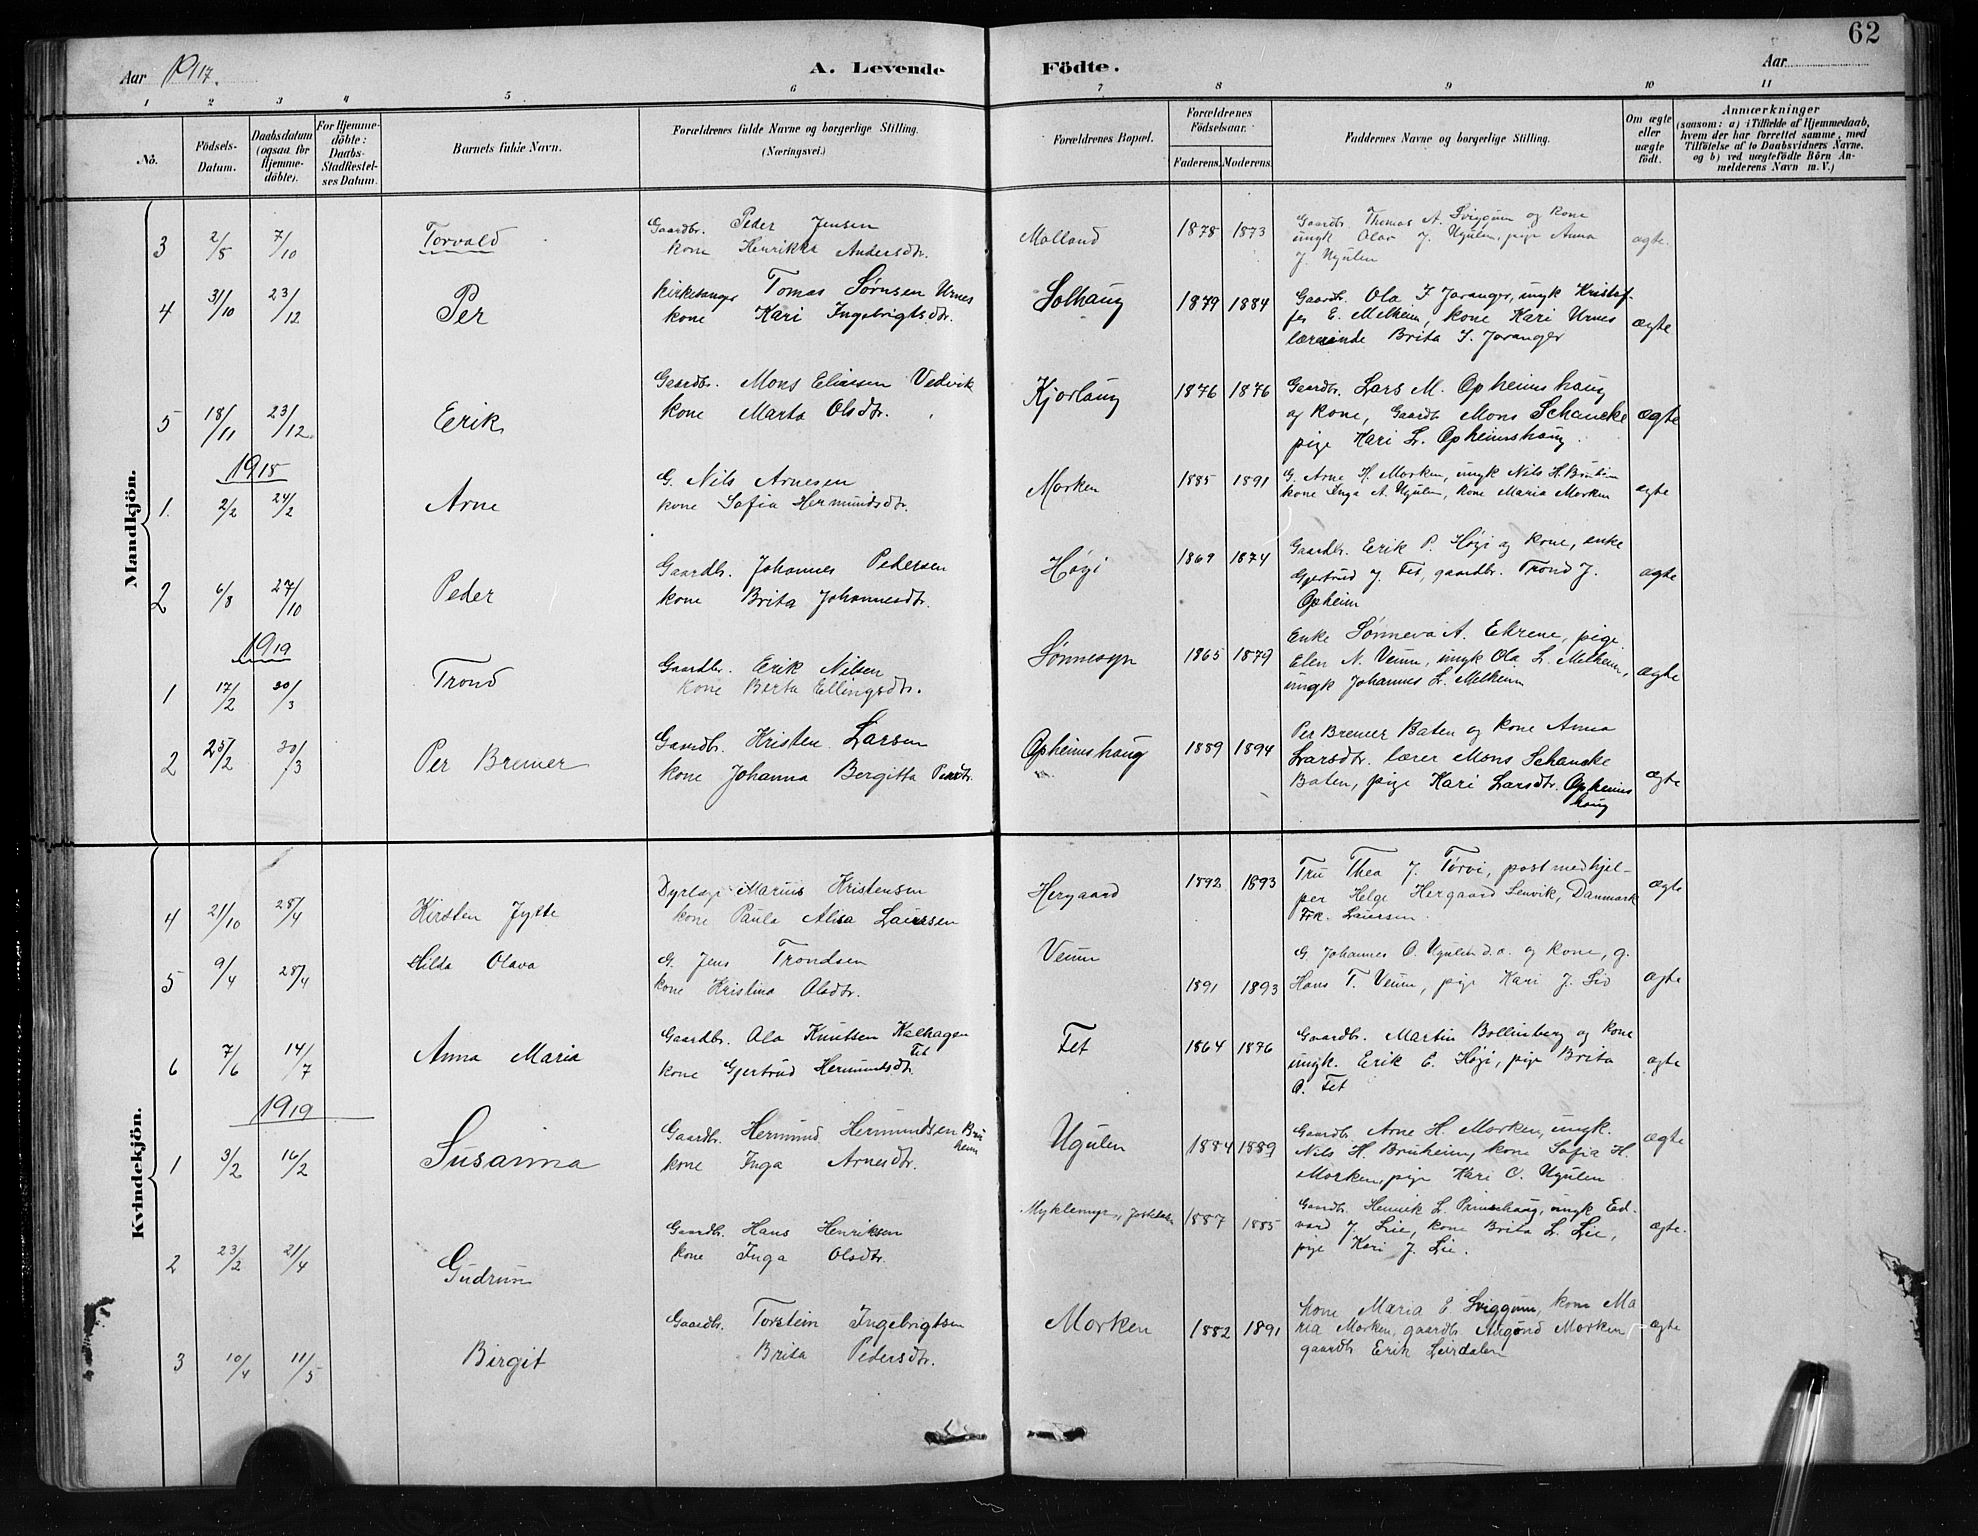 62
Aar 1917.
A. Levende Födte.
Aar
1 2 3 4 5 6 7 8 9 10 11
No.
Födsels-Datum.
Daabsdatum (ogsaa for Hjemme-döbte).
For Hjemme-döbte: Daabs-Stadfæstel-ses Datum.
Barnets fulde Navn.
Forældrenes fulde Navne og borgerlige Stilling.
(Næringsvei.)
Forældrenes Bopæl.
Forældrenes Födselsaar.
Faderens. Moderens.
Faddernes Navne og borgerlige Stilling.
Om ægte eller uægte födt.
Anmærkninger
(saasom: a) i Tilfælde af Hjemmedaab,
hvem der har forrettet samme, med
Tilföielse af to Daabsvidners Navne,
og b) ved uægtefödte Börn An-
melderens Navn m. V.)
Mandkjön.
3 2/8 7/10 Torvald
Gaardbr. Peder Jensen
kone Henrikka Andersdtr.
Molland 1878 1873
Gaardbr. Thomas A. Sviggum og kone
ungk Olav J. Ugulen, pige Anna
J. Ugulen
ægte.
4 31/10 23/12 Per
Kirkesanger Tomas Sørnsen Urnes
kone Kari Ingebrigtsdtr.
Solhaug 1879 1884
Gaardbr. Ola I. Joranger, ungk Kristof-
fer E. Melheim, kone Kari Urnes
lærerinde Brita I. Joranger
ægte
5 18/11 23/12. Erik
Gaardbr. Mons Eliasen Vedvik
kone Marta Olsdtr.
Kjorlaug 1876 1876
Gaardbr. Lars M. Opheimshaug
og kone, Gaardb Mons Schancke
pige Kari L. Opheimshaug.
ægte
1918
1. 2/2 24/2 Arne
G. Nils Arnesen
kone Sofia Hermundsdtr.
Morken 1885 1891
G. Arne H. Morken, ungk Nils H. Bruheim
kone Inga A. Ugulen, kone Maria Morken
ægte
2 6/8 27/10 Peder
Gaardb. Johannes Pedersen
kone Brita Johannesdtr.
Høgi 1869 1874
Gaardbr. Erik P. Høgi og kone, enke
Gjertrud J. Fet, gaardbr. Trond J.
Opheim
ægte
1919
1 17/2 30/3 Trond
Gaardbr. Erik Nilsen
kone Berta Ellingsdtr.
Sønnesyn 1865 1879
Enke Sønneva A. Ekrene, pige
Elen N. Veum, ungk Ola L. Melheim,
ungk Johannes L. Melheim
ægte
2 25/2 30/3 Per Bremer
Gaardbr. Kristen Larsen
kone Johanna Bergitta Persdtr.
Opheimshaug 1889 1894
Per Bremer Baten og kone Anna
Larsdtr. lærer Mons Schancke
Baten, pige Kari Larsdtr. Opheims
haug
ægte
Kvindekjön.
4 21/10 28/4 Kirsten Jytte
Dyrlæge Marius Kristensen
kone Paula Alisa Laursen
Hergaard 1892 1893
Fru Thea J. Tørvi, postmedhjel-
per Helge Hergaard Lenvik, Danmark
Frk. Laursen.
ægte
5 9/4 28/4 Hilda Olava
G. Jens Trondsen
kone Kristina Olsdtr.
Veum 1891 1893
G. Johannes O. Ugulen d.o. og kone, g.
Hans T. Veum, pige Kari J. Lid
ægte
6 7/6 14/7 Anna Maria
Gaardbr. Ola Knutsen Kalhagen
Fet
kone Gjertrud Hermundsdtr.
Fet 1864 1876
Gaardbr. Martin Bollinberg og kone
ungk. Erik E. Høgi, pige Brita
O. Fet
ægte
1919
1 3/2 16/2 Susanna
Gaardbr. Hermund Hermundsen Bru
heim
kone Inga Arnesdtr.
Ugulen 1884 1889
Gaardbr. Arne H. Morken, ungk.
Nils H. Bruheim, kone Sofia H.
Morken, pige Kari O. Ugulen
ægte
2 23/2 21/4 Gudrun
Gaardbr. Hans Henriksen
kone Inga Olsdtr.
Myklemyr, Jostedalen 1887 1885
Gaardbr. Henrik L. ungk Ed-
vard J. Lie, kone Brita L. Lie,
pige Kari J. Lie.
ægte.
3 10/4 11/5 Birgit
Gaardbr. Torstein Ingebrigtsen
Brita Pedersdtr.
Morken 1882 1891
kone Maria E Sviggum, kone Ma
ria Morken, gaardb Augund Morken
gaardb Erik Leirdalen
ægte